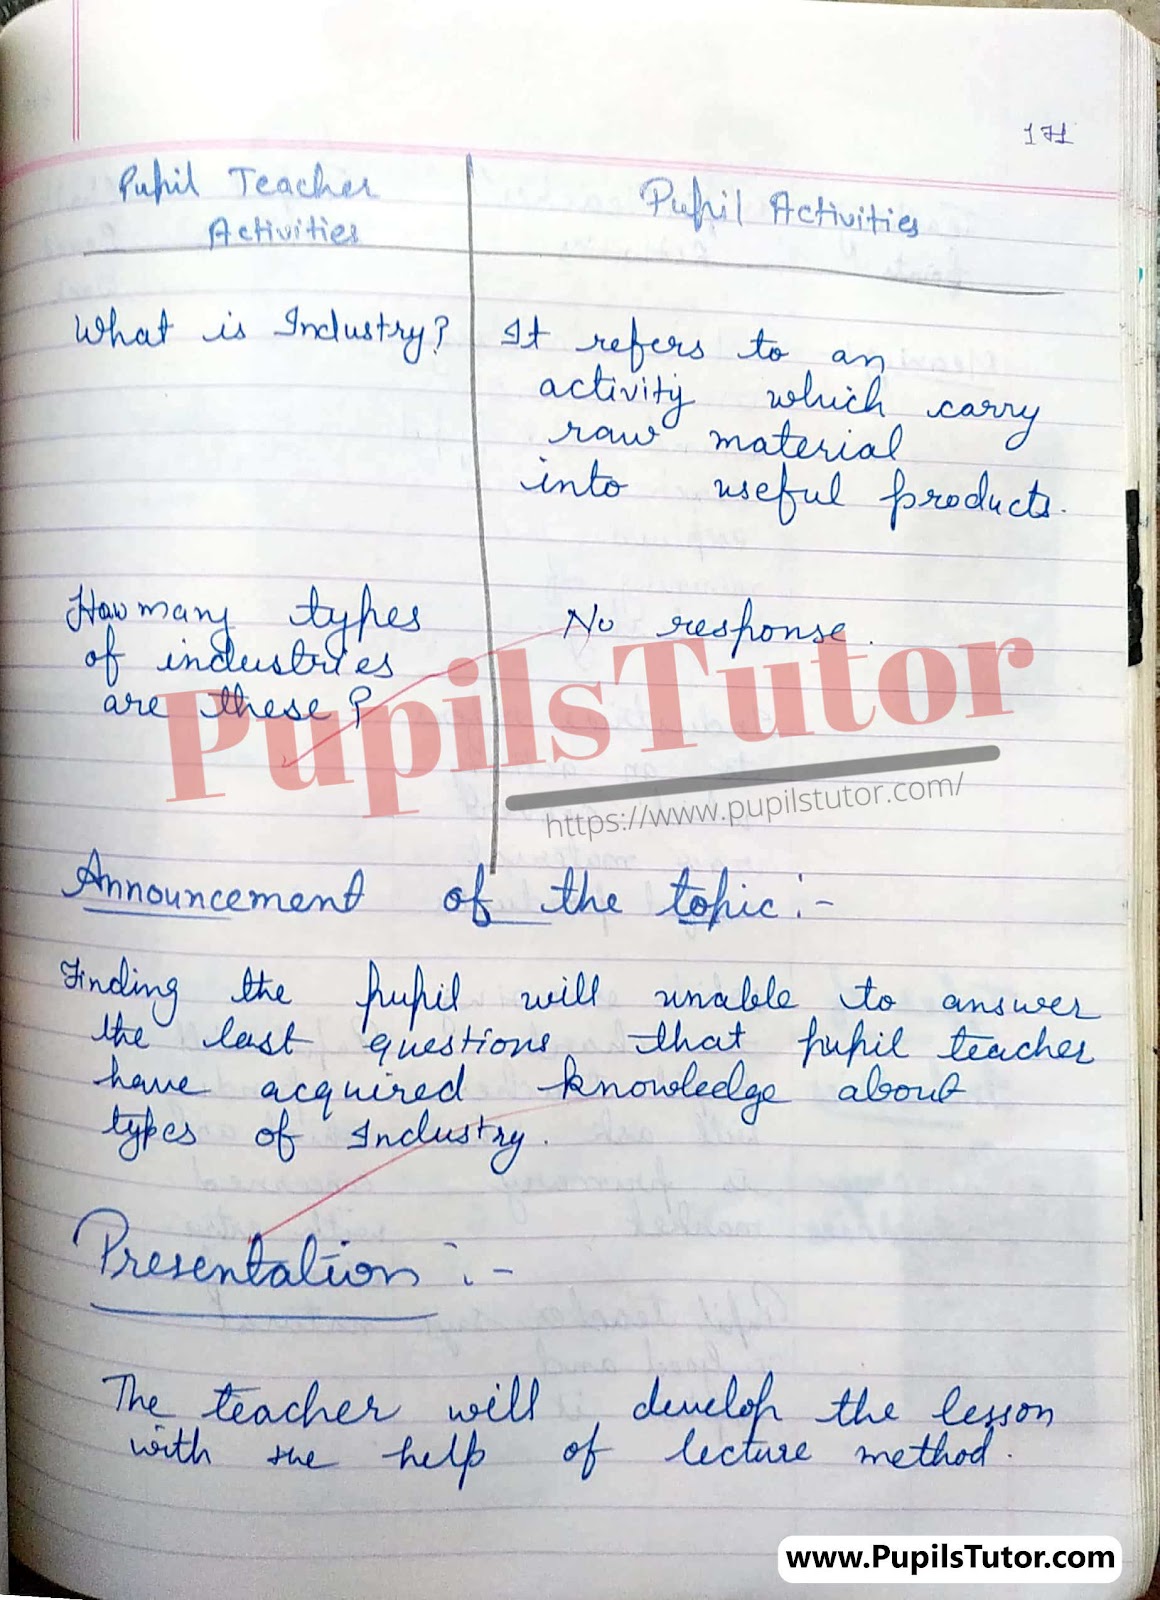 171
Pupil Teacher
Activities
Pupil Activities
What is Industry?
It refers to an
activity which carry
raw material
into useful products.
How many types
of industries
are these?
No response.
PupilsTutor
https://www.pupilstutor.com/
Announcement of the topic:-
Finding the pupil will unable to answer
the last questions that pupil teacher
have acquired knowledge about
types of Industry.
Presentation:-
The teacher will develop the lesson
with the help of lecture method.
www.PupilsTutor.com